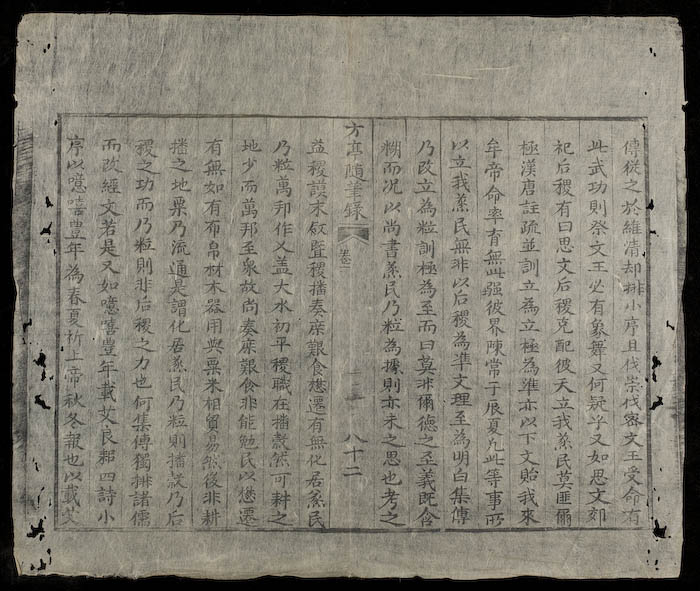 傳從之於維清却排小序且伐崇伐密文王受命有
此武功則祭文王必有象舞又何疑乎又如思文郊
祀后稷有曰思文后稷克配彼天立我蒸民莫匪爾
極漢唐註疏並訓立為立極為準亦以下文貽我來
牟帝命率育無此彊彼界陳常于辰夏凡此等事所
以立我蒸民無非以后稷為準文理至為明白集傳
乃改立為粒訓極為至而曰莫非爾德之至義既含
糊而况以尚書蒸民乃粒為據則亦未之思也考之
方亭隨筆錄
卷二
八十二
益稷謨末叙曁稷播奏庶艱食懋遷有無化居蒸民
乃粒萬邦作乂盖大水初平稷職在播穀然可耕之
地少而萬邦至衆故尚奏庶艱食非能勉民以懋遷
有無如有布帛材木器用與粟米相貿易然後非耕
播之地粟乃流通是謂化居蒸民乃粒則播穀乃后
稷之功而乃粒則非后稷之力也何集傳獨排諸儒
而改經文若是又如噫嘻豊年載芟良耜四詩小
序以噫嘻豊年為春夏祈上帝秋冬報也以載芟